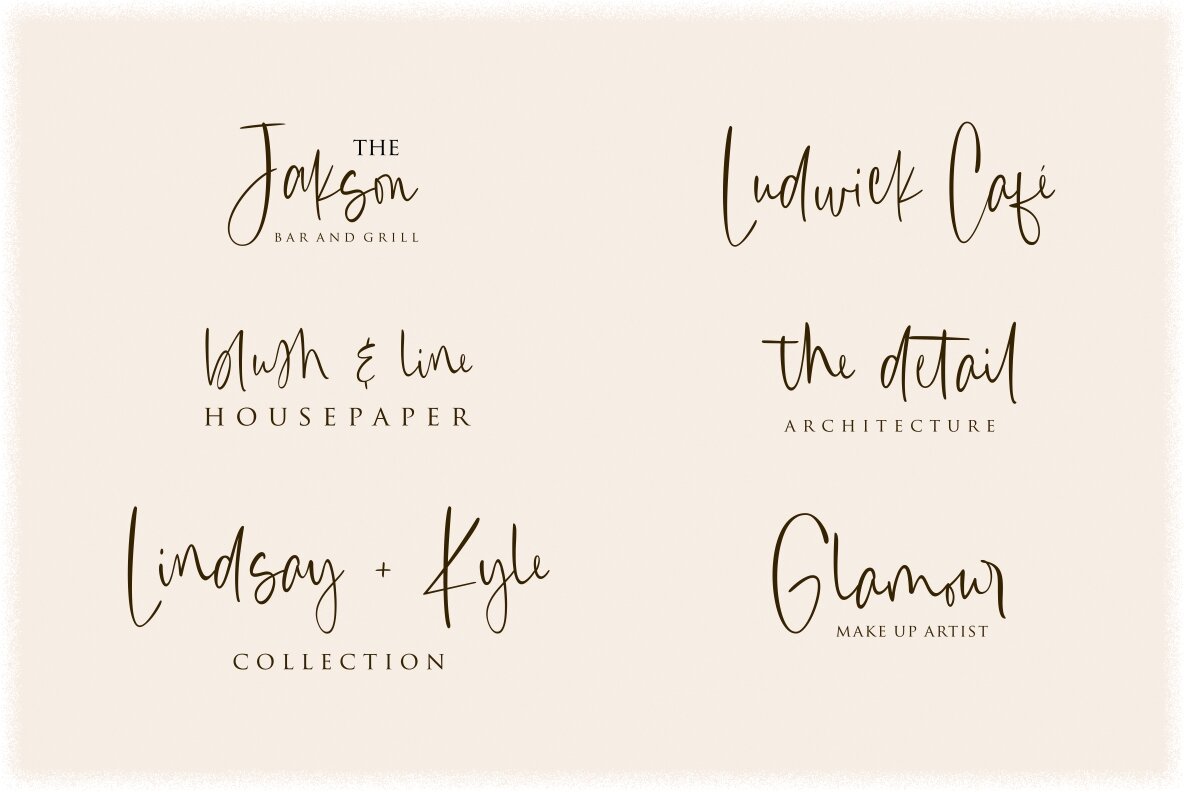 THE
Jakson
BAR AND GRILL
Ludwick Café
blush & line
HOUSEPAPER
the detail
ARCHITECTURE
Lindsay + Kyle
COLLECTION
Glamour
MAKE UP ARTIST